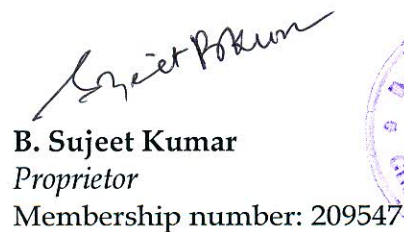 B. Sujeet Kumar
Proprietor
Membership number: 209547